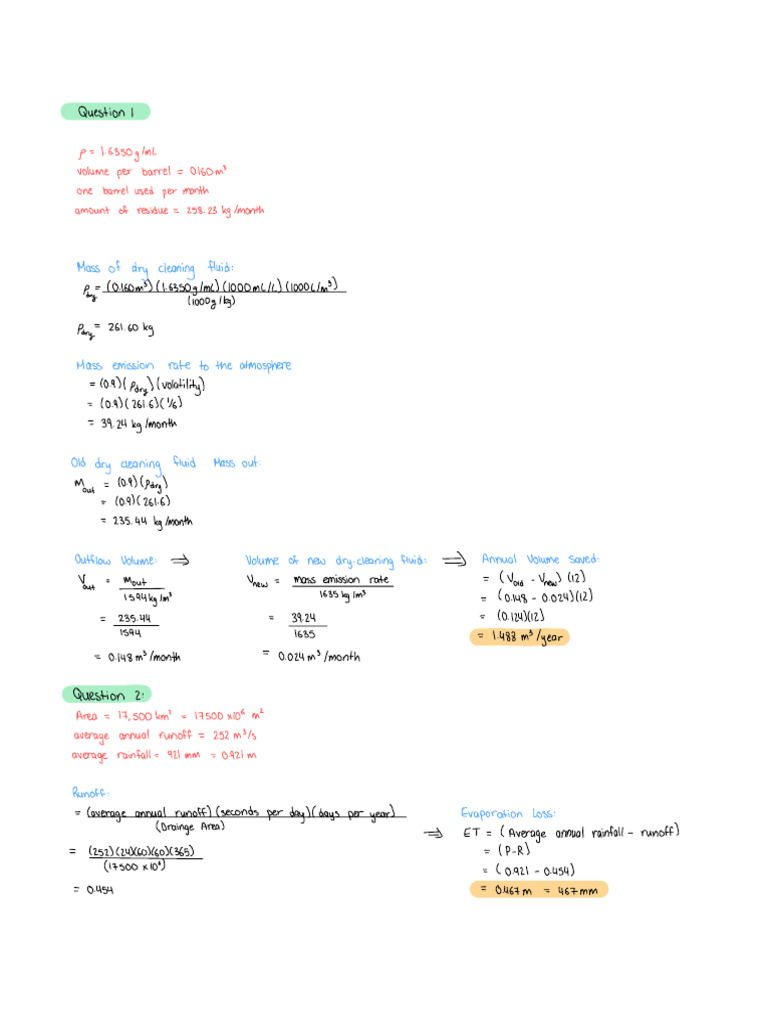 Question 1
ρ = 1.6350 g/mL
volume per barrel = 0.160 m³
one barrel used per month
amount of residue = 258.23 kg/month
Mass of dry cleaning fluid:
ρdry = (0.160 m³)(1.6350 g/mL)(1000 mL/L)(1000 L/m³)
(1000 g/kg)
ρdry = 261.60 kg
Mass emission rate to the atmosphere
= (0.9)(ρdry)(volatility)
= (0.9)(261.6)(1/6)
= 39.24 kg/month
Old dry cleaning fluid Mass out:
Mout = (0.9)(ρdry)
= (0.9)(261.6)
= 235.44 kg/month
Outflow Volume: ⇒
Vout = mout
1594 kg/m³
= 235.44
1594
= 0.148 m³/month
Volume of new dry-cleaning fluid: ⇒
Vnew = mass emission rate
1635 kg/m³
= 39.24
1635
= 0.024 m³/month
Annual Volume Saved:
= (Vold - Vnew)(12)
= (0.148 - 0.024)(12)
= (0.124)(12)
= 1.488 m³/year
Question 2:
Area = 17,500 km² = 17500 x10⁶ m²
average annual runoff = 252 m³/s
average rainfall = 921 mm = 0.921 m
Runoff:
= (average annual runoff)(seconds per day)(days per year)
(Drainge Area)
= (252)(24)(60)(60)(365)
(17500 x10⁶)
= 0.454
⇒
Evaporation Loss:
ET = (Average annual rainfall - runoff)
= (P-R)
= (0.921 - 0.454)
= 0.467 m = 467 mm